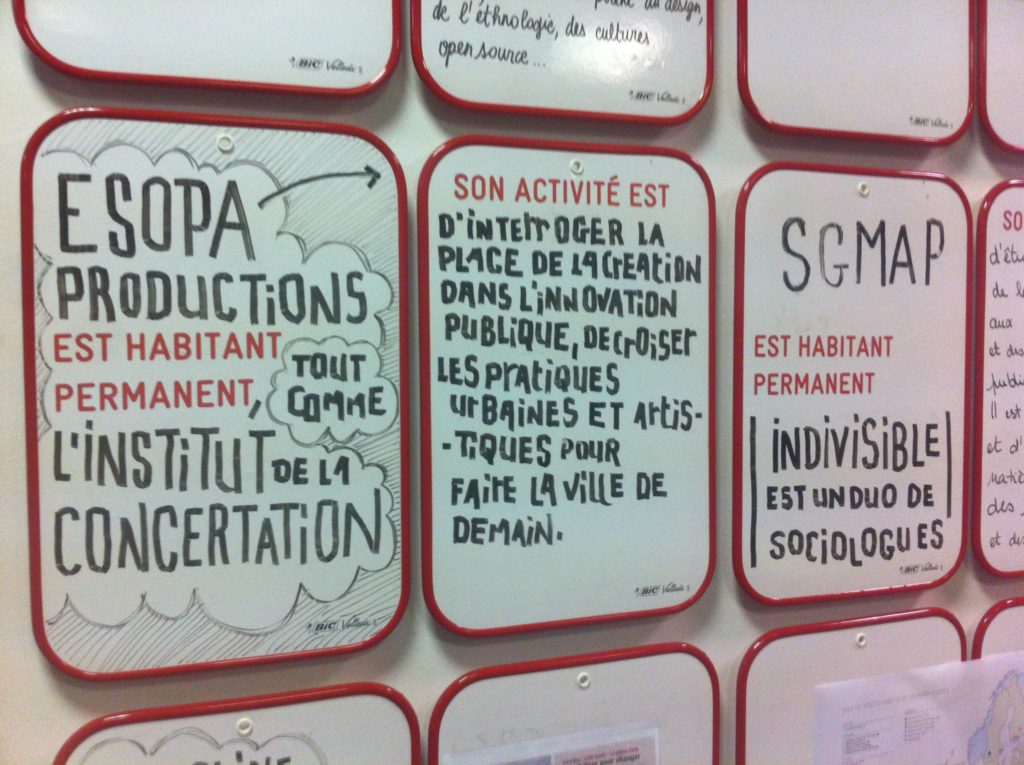 de l'éthnologie, des cultures
open source ...
BIC Velleda
BIC Velleda
BIC Velleda
ESOPA
PRODUCTIONS
EST HABITANT
PERMANENT,
TOUT
COMME
L'INSTITUT DE LA
CONCERTATION
BIC Velleda
SON ACTIVITÉ EST
D'INTERROGER LA
PLACE DE LA CREATION
DANS L'INNOVATION
PUBLIQUE, DECROISER
LES PRATIQUES
URBAINES ET ARTIS-
-TIQUES POUR
FAIRE LA VILLE DE
DEMAIN.
BIC Velleda
SGMAP
EST HABITANT
PERMANENT
INDIVISIBLE
EST UN DUO DE
SOCIOLOGUES
BIC Velleda
SO
d'étu
de l
aux
et dis
publi
Il est
et d'
matiè
des
et des
pour changer